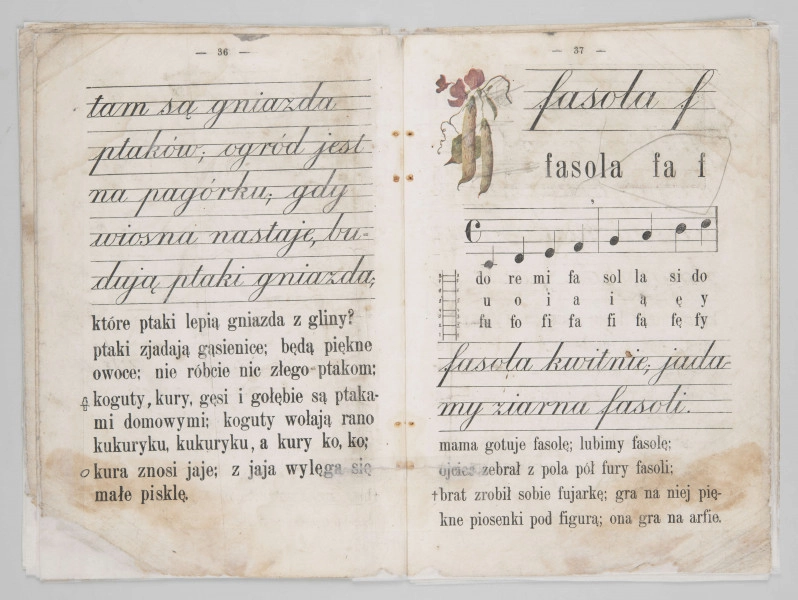 — 36 —
tam są gniazda
ptaków; ogród jest
na pagórku; gdy
wiosna nastaje, bu-
dują ptaki gniazda;
które ptaki lepią gniazda z gliny?
ptaki zjadają gąsienice; będą piękne
owoce; nie róbcie nic złego ptakom;
koguty, kury, gęsi i gołębie są ptaka-
mi domowymi; koguty wołają rano
kukuryku, kukuryku, a kury ko, ko;
kura znosi jaje; z jaja wylęga się
małe pisklę.
— 37 —
fasola f
fasola fa f
do re mi fa sol la si do
u o i a i ą ę y
fu fo fi fa fi fą fę fy
fasola kwitnie; jada-
my ziarna fasoli.
mama gotuje fasolę; lubimy fasolę;
ojciec zebrał z pola pół fury fasoli;
brat zrobił sobie fujarkę; gra na niej pię-
kne piosenki pod figurą; ona gra na arfie.